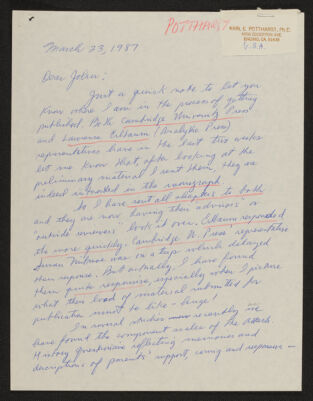 POTTHARST
KARL E. POTTHARST, Ph.D.
ENCINO, CA 91436
U.S.A.
March 23, 1987
Dear John:
Just a quick note to let you
know where I am in the process of getting
published. Both Cambridge University Press
and Lawrence Erlbaum (Analytic Press)
representatives have in the last two weeks
let me know that, after looking at the
preliminary material I sent them, they are
indeed interested in the monograph.
So I have sent all chapters to both
and they are now having their advisors or
"outside reviewers" look it over. Erlbaum responded
the more quickly. Cambridge U. Press representative
Susan Milmoe was on a trip which delayed
their response. But actually I have found
them quite responsive, especially when I picture
what their load of material submitted for
publication must be like - huge!
In several studies recently we
have found the component scales of the Attach.
History Questionnaire reflecting memories and
descriptions of parents' support, caring and response -